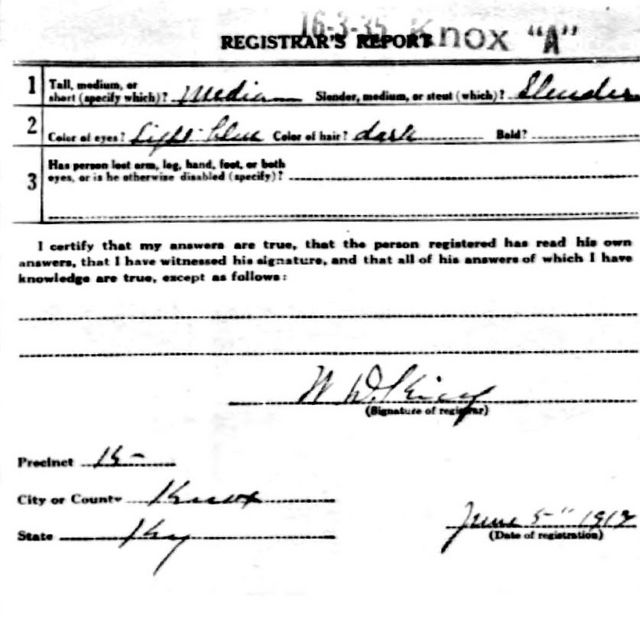 16-3-35 Knox "A"
REGISTRAR'S REPORT
1 Tall, medium, or
short (specify which)? Media Slender, medium, or stout (which)? Slender
2 Color of eyes? Light blue Color of hair? dark Bald?
Has person lost arm, leg, hand, foot, or both
3 eyes, or is he otherwise disabled (specify)?
I certify that my answers are true, that the person registered has read his own
answers, that I have witnessed his signature, and that all of his answers of which I have
knowledge are true, except as follows:
W. D. King
(Signature of registrar)
Precinct
City or County Knox
State Ky
June 5" 1917
(Date of registration)